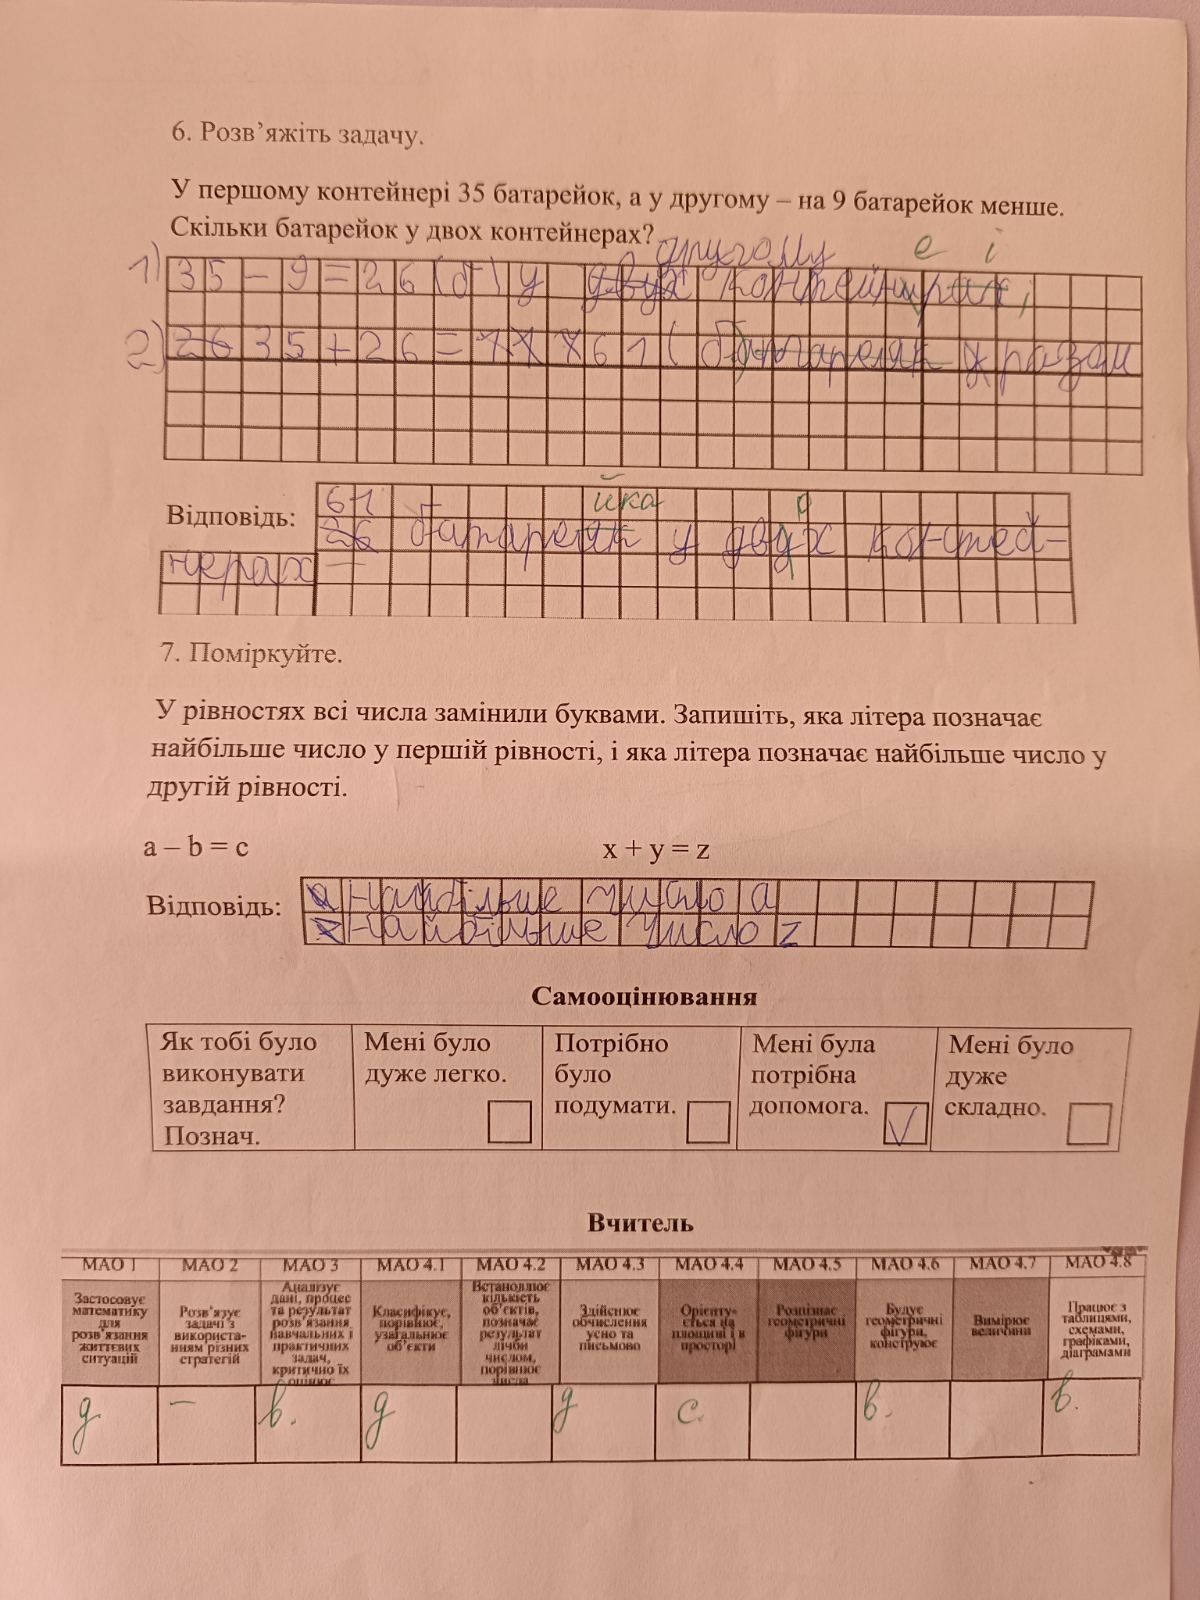 6. Розв’яжіть задачу.
У першому контейнері 35 батарейок, а у другому – на 9 батарейок менше.
Скільки батарейок у двох контейнерах?
другому е і
1) 35 - 9 = 26 (б) у двух контейнирах,
2) 26 35 + 26 = 61 (б) разом
61 йка о
Відповідь: 26 батареяк у двух контей-
нерах
7. Поміркуйте.
У рівностях всі числа замінили буквами. Запишіть, яка літера позначає
найбільше число у першій рівності, і яка літера позначає найбільше число у
другій рівності.
a – b = c x + y = z
Відповідь: а найбільше число а
z найбільше число z
Самооцінювання
Як тобі було виконувати завдання? Познач.
Мені було дуже легко.
Потрібно було подумати.
Мені була потрібна допомога. √
Мені було дуже складно.
Вчитель
МАО 1 МАО 2 МАО 3 МАО 4.1 МАО 4.2 МАО 4.3 МАО 4.4 МАО 4.5 МАО 4.6 МАО 4.7 МАО 4.8
Застосовує математику для розв’язання життєвих ситуацій
Розв’язує задачі з використанням різних стратегій
Аналізує дані, процес та результат розв’язання навчальних і практичних задач, критично їх оцінює
Класифікує, порівнює, узагальнює об’єкти
Встановлює кількість об’єктів, позначає результат лічби числом, порівнює числа
Здійснює обчислення усно та письмово
Орієнту-ється на площині і в просторі
Розпізнає геометричні фігури
Будує геометричні фігури, конструює
Вимірює величини
Працює з таблицями, схемами, графіками, діаграмами
д – в. д д с. в. в.